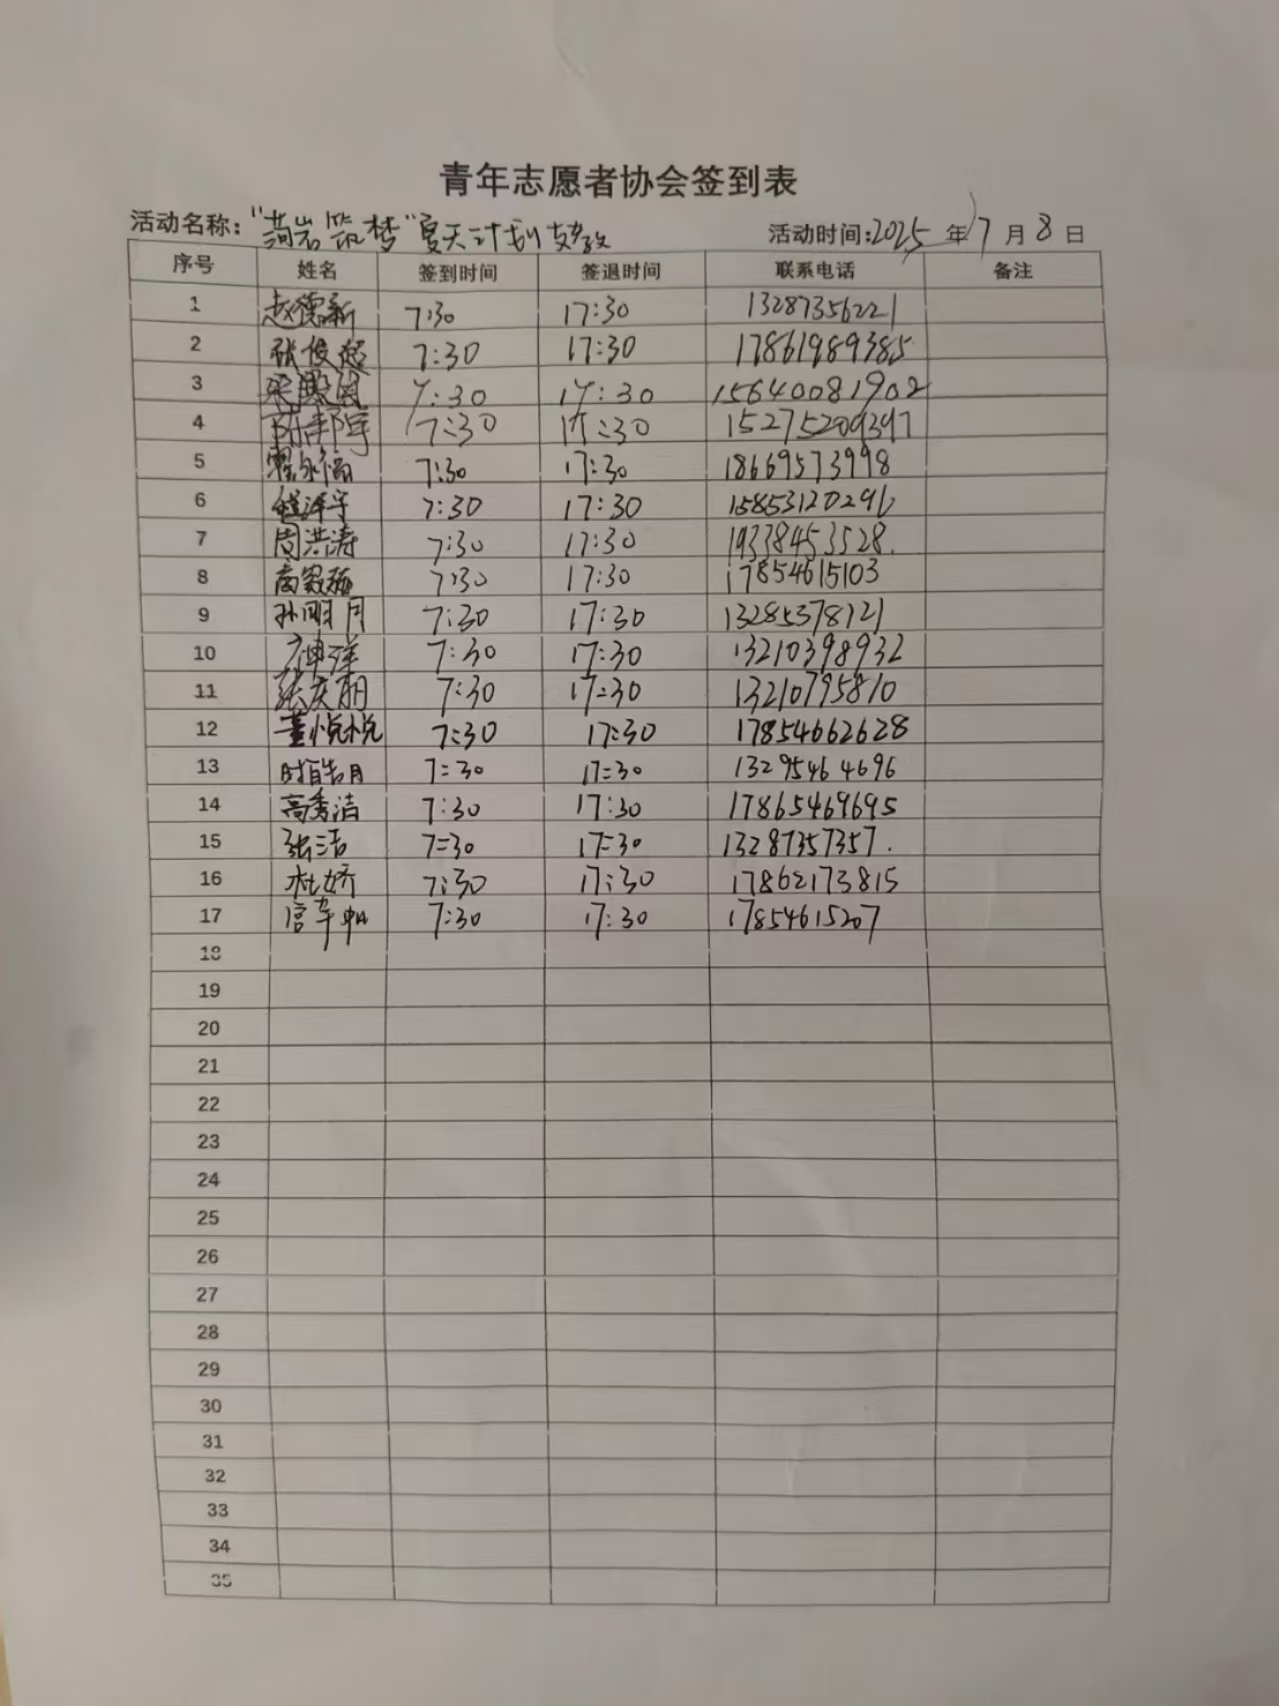 青年志愿者协会签到表
活动名称："菏岩筑梦"夏天计划支教 活动时间:2025年7月8日
序号 姓名 签到时间 签退时间 联系电话 备注
1 赵德新 7:30 17:30 13287356221
2 张俊超 7:30 17:30 17861989385
3 7:30 17:30 15640081902
4 7:30 17:30 15275209397
5 7:30 17:30 18669573998
6 7:30 17:30 15853120296
7 周洪涛 7:30 17:30 19338453528.
8 7:30 17:30 17854615103
9 孙明月 7:30 17:30 13285378121
10 7:30 17:30 13210398932
11 张庆丽 7:30 17:30 13210795810
12 董悦悦 7:30 17:30 17854662628
13 时皓月 7:30 17:30 13295464696
14 高秀洁 7:30 17:30 17865469695
15 张洁 7:30 17:30 13287357357.
16 杜娇 7:30 17:30 17862173815
17 7:30 17:30 17854615207
18
19
20
21
22
23
24
25
26
27
28
29
30
31
32
33
34
35